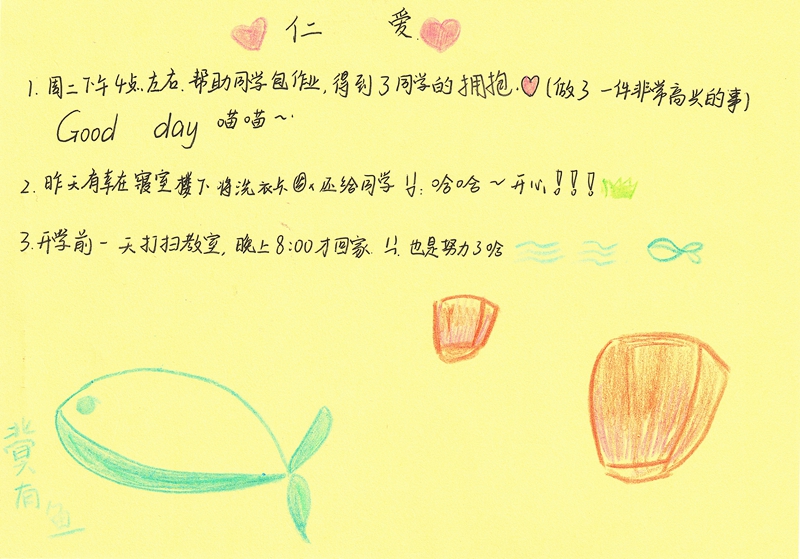 仁 爱
1. 周二下午4点左右.帮助同学包作业,得到了同学的拥抱.(做了一件非常高兴的事)
Good day 喵喵~
2. 昨天有幸在寝室楼下将洗衣卡 还给同学 !! 哈哈~开心!!!
3. 开学前一天打扫教室,晚上8:00才回家. !! 也是努力了哈
北冥有鱼